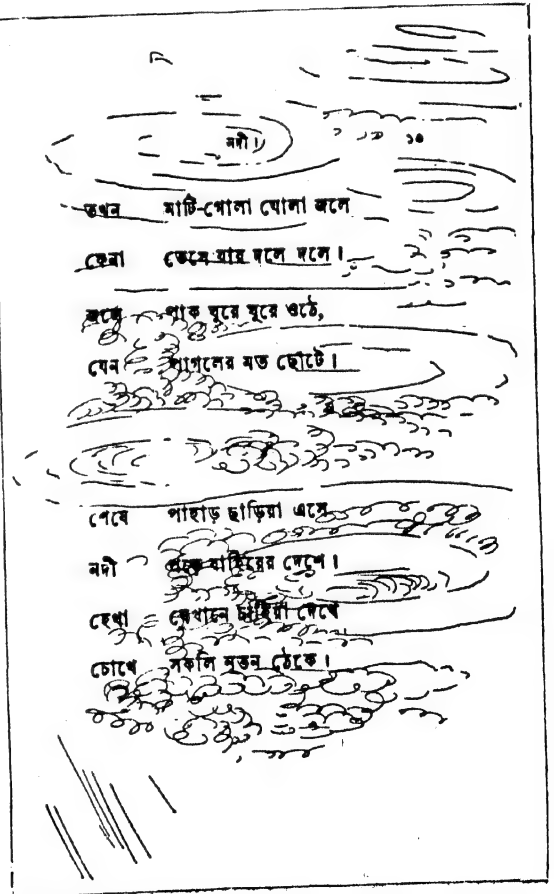 নদী। ১৩
তখন মাটি-গোলা ঘোলা জলে
ফেনা ভেসে যায় দলে দলে।
জলে পাক ঘুরে ঘুরে ওঠে,
যেন পাগলের মত ছোটে।
শেষে পাহাড় ছাড়িয়া এসে
নদী পড়ে বাহিরের দেশে।
হেথা যেখানে চাহিয়া দেখে
চোখে সকলি নূতন ঠেকে।